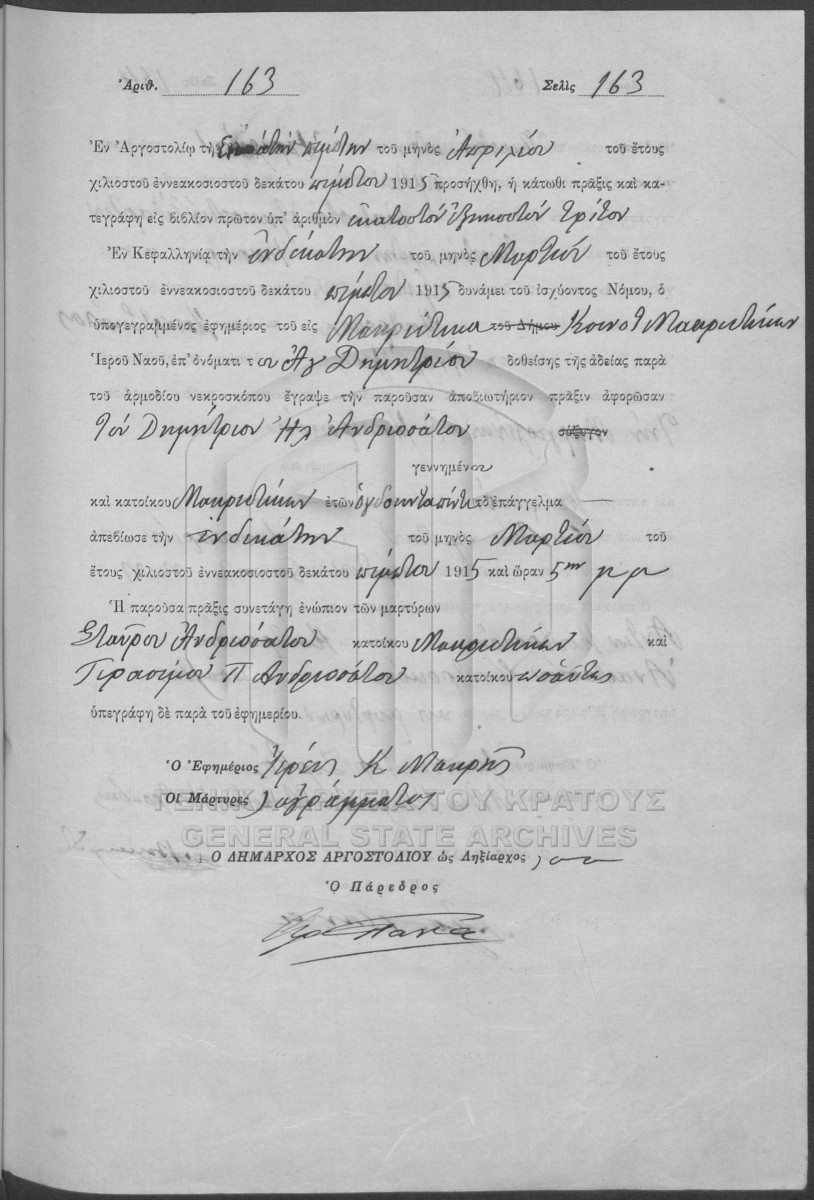 Ἀριθ. 163 Σελὶς 163
Ἐν Ἀργοστολίῳ τὴν πέμπτην τοῦ μηνὸς Ἀπριλίου τοῦ ἔτους
χιλιοστοῦ ἐννεακοσιοστοῦ δεκάτου πέμπτου 1915 προσήχθη, ἡ κάτωθι πρᾶξις καὶ κα-
τεγράφη εἰς βιβλίον πρῶτον ὑπ' ἀριθμὸν ἑκατοστόν ἑξηκοστόν τρίτον
Ἐν Κεφαλληνίᾳ τὴν ἑνδεκάτην τοῦ μηνὸς Μαρτίου τοῦ ἔτους
χιλιοστοῦ ἐννεακοσιοστοῦ δεκάτου πέμπτου 1915 δυνάμει τοῦ ἰσχύοντος Νόμου, ὁ
ὑπογεγραμμένος ἐφημέριος τοῦ εἰς Μακρυώτικα τοῦ Δήμου Κοινοτ Μακρυωτίκων
Ἱεροῦ Ναοῦ, ἐπ' ὀνόματι τ ου Ἁγ Δημητρίου δοθείσης τῆς ἀδείας παρὰ
τοῦ ἁρμοδίου νεκροσκόπου ἔγραψε τὴν παροῦσαν ἀποβιωτήριον πρᾶξιν ἀφορῶσαν
τόν Δημήτριον Ἠλ Ἀνδριοσάτον σύζυγον
γεννημένον
καὶ κατοίκου Μακρυωτίκων ἐτῶν ὀγδοηνταπέντε τὸ ἐπάγγελμα —
ἀπεβίωσε τὴν ἑνδεκάτην τοῦ μηνὸς Μαρτίου τοῦ
ἔτους χιλιοστοῦ ἐννεακοσιοστοῦ δεκάτου πέμπτου 1915 καὶ ὥραν 5ην μ μ
Ἡ παροῦσα πρᾶξις συνετάγη ἐνώπιον τῶν μαρτύρων
Σταύρου Ἀνδριοσάτου κατοίκου Μακρυωτίκων καὶ
Γερασίμου Π Ἀνδριοσάτου κατοίκου ὡσαύτως
ὑπεγράφη δὲ παρὰ τοῦ ἐφημερίου.
Ὁ Ἐφημέριος Ἱερεύς Κ Μακρής
Οἱ Μάρτυρες ἀγράμματοι
ΓΕΝΙΚΑ ΑΡΧΕΙΑ ΤΟΥ ΚΡΑΤΟΥΣ
GENERAL STATE ARCHIVES
Ὁ ΔΗΜΑΡΧΟΣ ΑΡΓΟΣΤΟΛΙΟΥ ὡς Ληξίαρχος
Ὁ Πάρεδρος